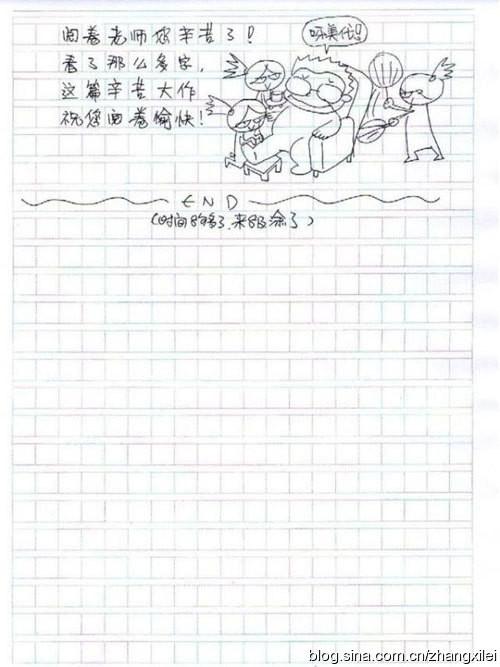 呀美伐!
阅卷老师您辛苦了!
看了那么多字,
这篇辛苦大作
祝您阅卷愉快!
END
(时间够了,来涂了)
blog.sina.com.cn/zhangxilei